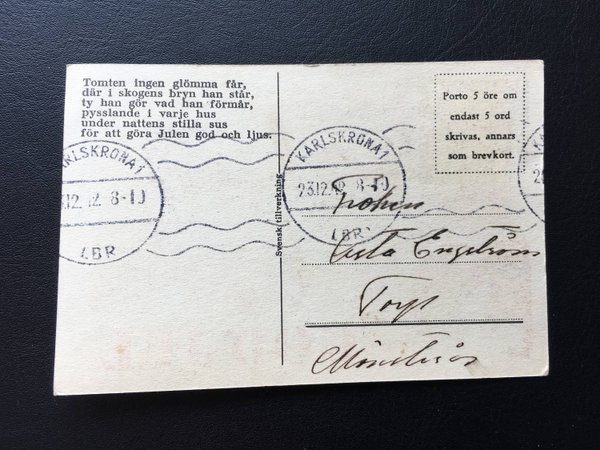 Tomten ingen glömma får,
där i skogens bryn han står,
ty han gör vad han förmår,
pysslande i varje hus
under nattens stilla sus
för att göra Julen god och ljus.
Porto 5 öre om
endast 5 ord
skrivas, annars
som brevkort.
KARLSKRONA 1
12 8-10
LBR
KARLSKRONA 1
23.12. 8-10
LBR
Svensk tillverkning
Fröken
Engström